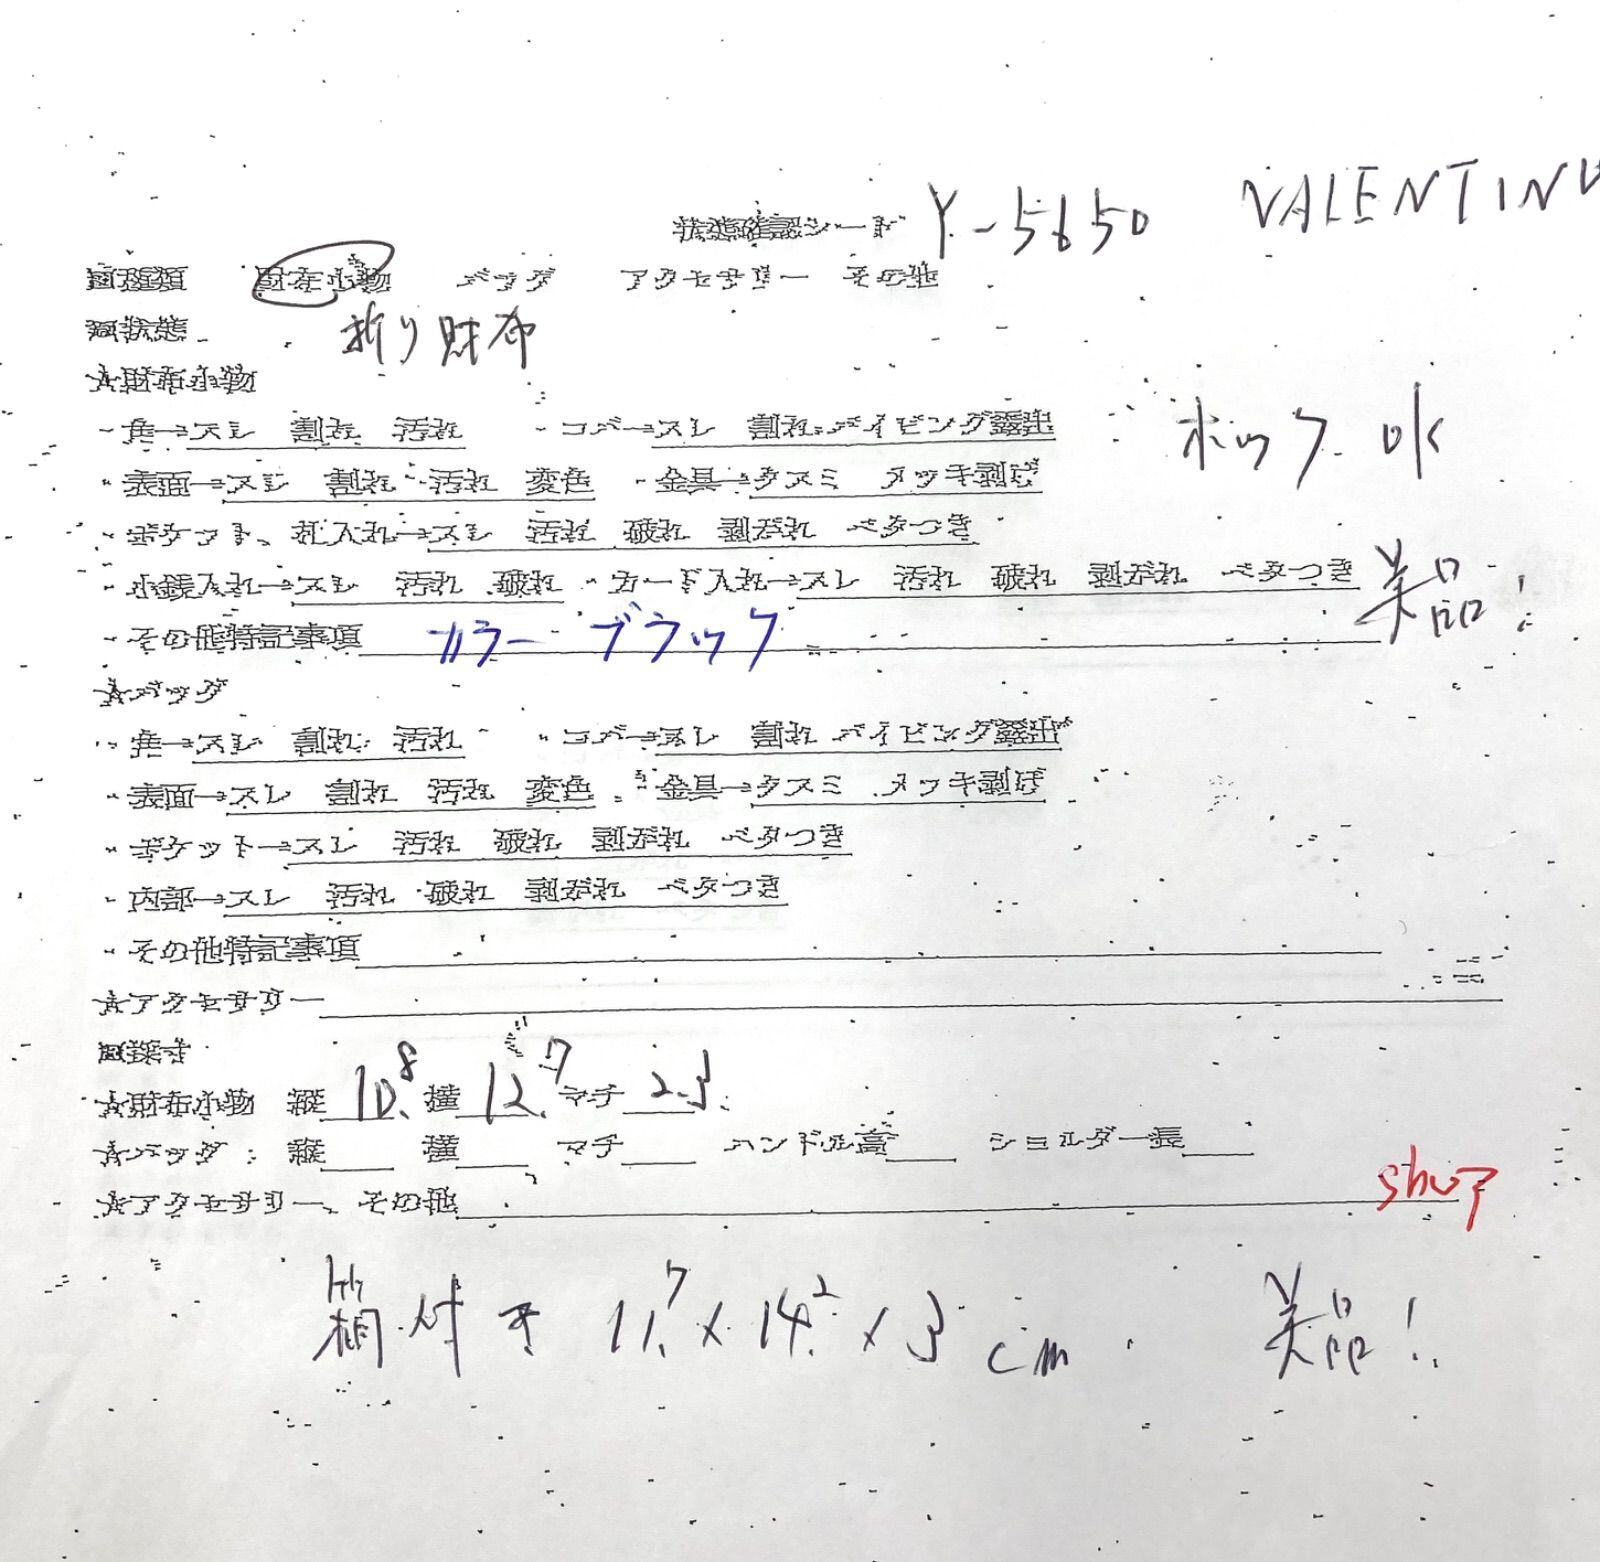 状態確認シート Y-5650 VALENTINO
■種類 財布小物 バッグ アクセサリー その他
■状態 折り財布
★財布小物
・角→スレ 割れ 汚れ ・コバ→スレ 割れ パイピング露出 ホック OK
・表面→スレ 割れ 汚れ 変色 ・金具→クスミ メッキ剥げ
・ポケット、札入れ→スレ 汚れ 破れ 剥がれ ベタつき
・小銭入れ→スレ 汚れ 破れ ・カード入れ→スレ 汚れ 破れ 剥がれ ベタつき 美品!
・その他特記事項 カラー ブラック
★バッグ
・角→スレ 割れ 汚れ ・コバ→スレ 割れ パイピング露出
・表面→スレ 割れ 汚れ 変色 ・金具→クスミ メッキ剥げ
・ポケット→スレ 汚れ 破れ 剥がれ ベタつき
・内部→スレ 汚れ 破れ 剥がれ ベタつき
・その他特記事項
★アクセサリー
■採寸
★財布小物 縦 10.8 横 12.7 マチ 2.3
★バッグ 縦 横 マチ ハンドル高 ショルダー長
★アクセサリー、その他 shop
箱付き 11.7×14.2×3cm 美品!